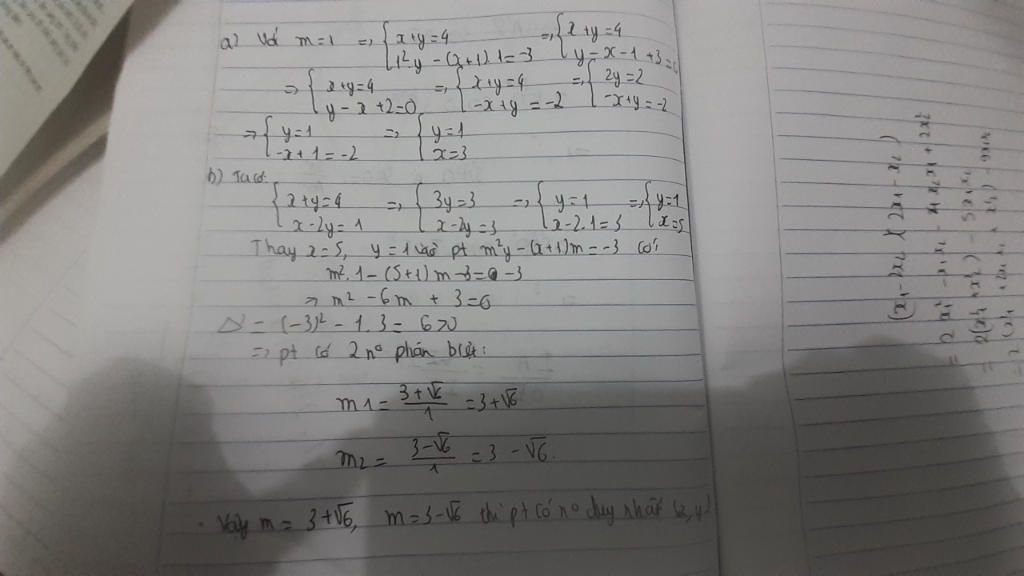 a) Với m=1 => { x+y=4 ; 1²y-(x+1)1=-3 => { x+y=4 ; y-x-1+3=
=> { x+y=4 ; y-x+2=0 => { x+y=4 ; -x+y=-2 => { 2y=2 ; -x+y=-2
=> { y=1 ; -x+1=-2 => { y=1 ; x=3
b) Ta có:
{ x+y=4 ; x-2y=1 => { 3y=3 ; x-2y=3 => { y=1 ; x-2.1=3 => { y=1 ; x=5
Thay x=5, y=1 vào pt m²y-(x+1)m=-3 có:
m².1-(5+1)m =-3
=> m²-6m+3=0
Δ' = (-3)²-1.3=6>0
=> pt có 2 n° phân biệt:
m1 = (3+√6)/1 = 3+√6
m2 = (3-√6)/1 = 3-√6.
. Vậy m = 3+√6, m=3-√6 thì pt có n° duy nhất
(x1-2x2)(2x1-x2)